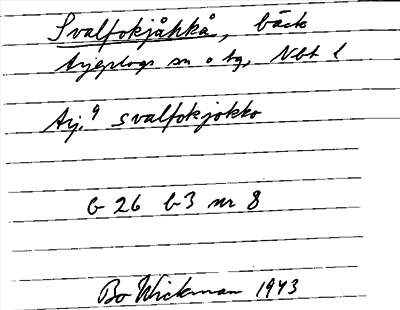 Svalfokjåhkå, bäck
Arjeplogs sn o tg, Nbt l
Arj. 9 svalfokjokko
G 26 b3 nr 8
Bo Wickman 1943